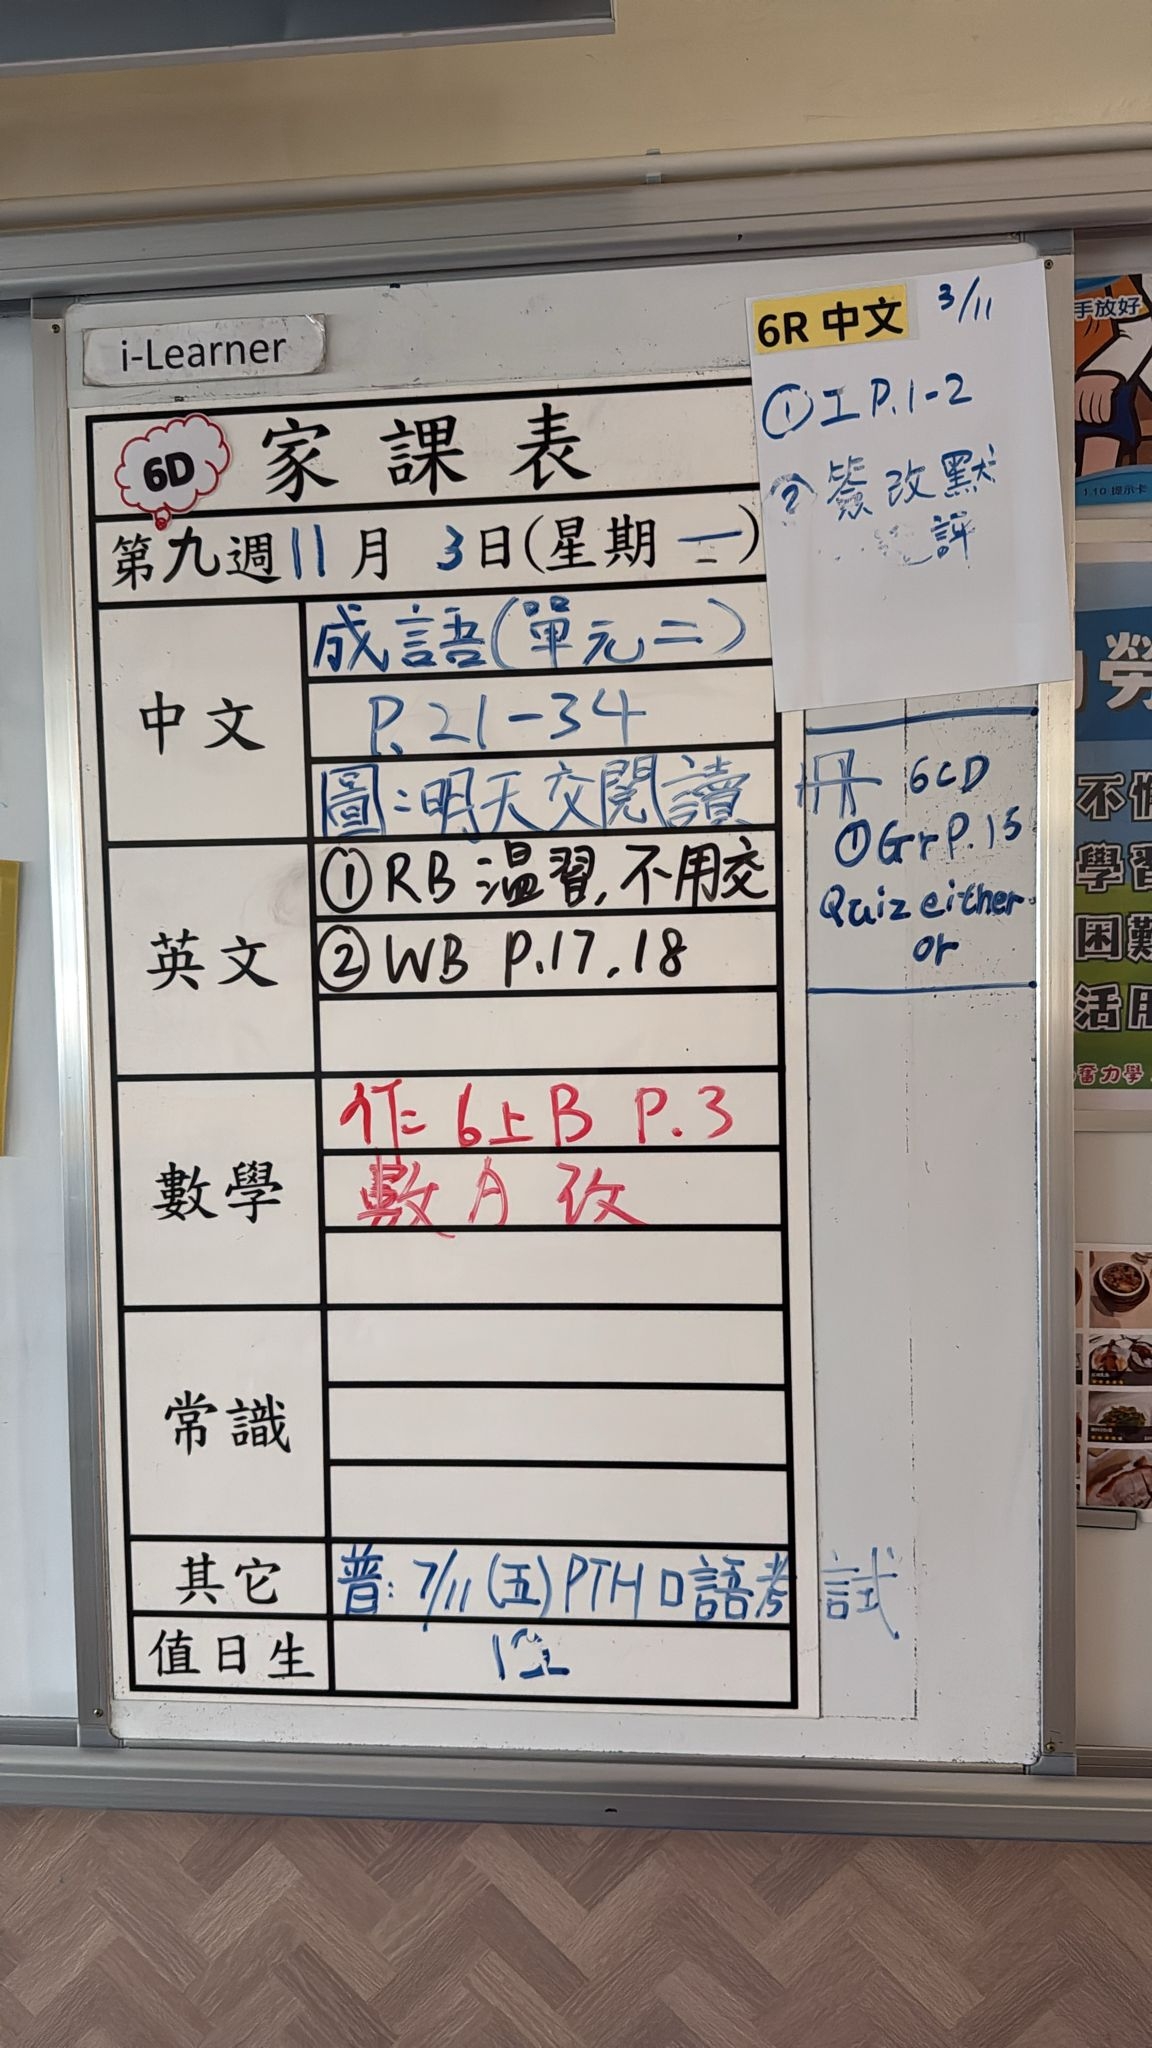 i-Learner
6D 家課表
第九週11月3日(星期一)
中文
成語(單元二)
P.21-34
圖:明天交閱讀冊
英文
①RB 温習,不用交
②WB P.17,18
數學
作:6上B P.3
數月改
常識
其它
普:7/11(五)PTH口語考試
值日生
6R 中文 3/11
①工P.1-2
②簽改默
評
6CD
①Gr P.15
Quiz either
or
手放好
1.10 提示卡
勞
不
學習
困難
活用
奮力學